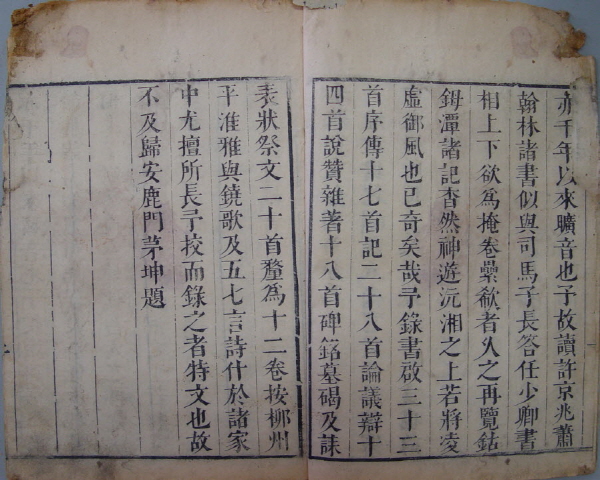 亦千年以來曠音也予故讀許京兆蕭
翰林諸書似與司馬子長答任少卿書
相上下欲爲掩卷纍欷者久之再覽鈷
鉧潭諸記杳然神遊沅湘之上若將凌
虛御風也已奇矣哉予錄書啟三十三
首序傳十七首記二十八首論議辯十
四首說贊雜著十八首碑銘墓碣及誄
表狀祭文二十首釐爲十二卷按柳州
平淮雅與鐃歌及五七言詩什於諸家
中尤擅所長予挍而錄之者特文也故
不及歸安鹿門茅坤題